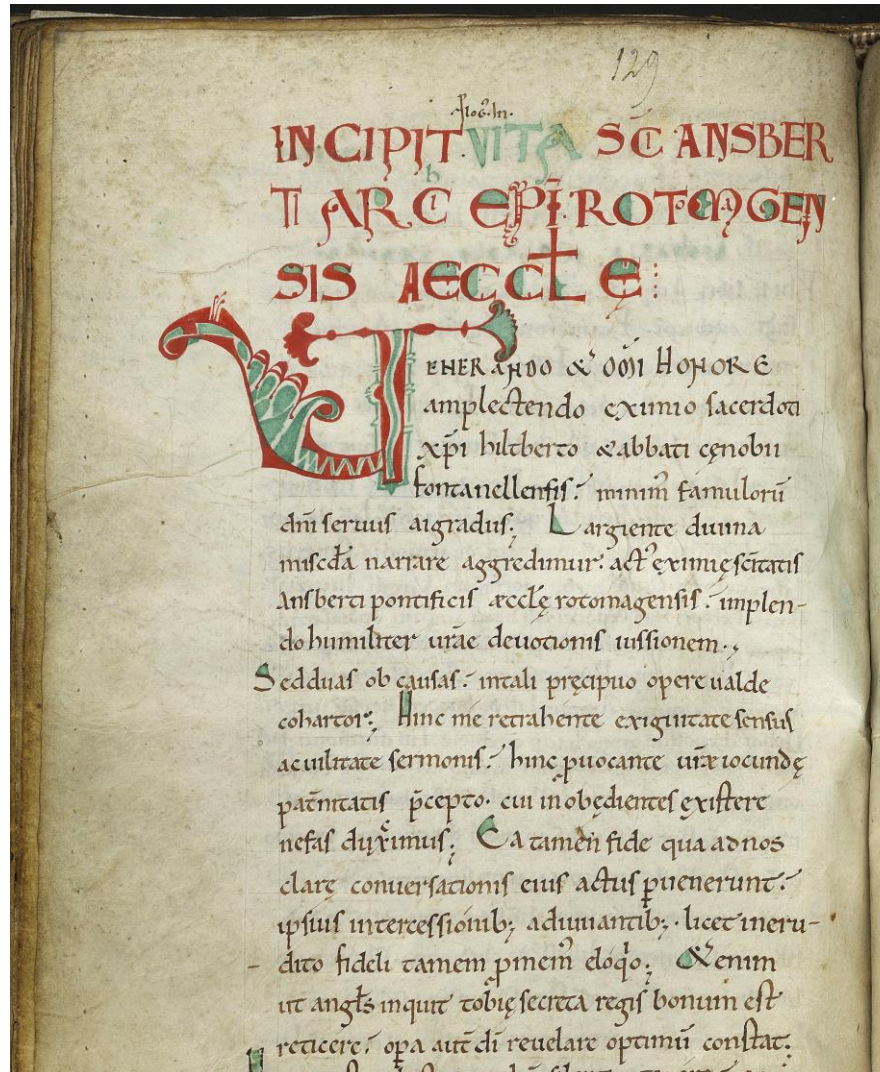 129
ꝓlog̃. in.
INCIPIT VITA SC̄I ANSBER
TI ARCHIEPĪ. ROTOMAGEN
SIS AECCL̄E:
VENERANDO & OM̅I HONORE
amplectendo eximio sacerdoti
xp̄i hiltberto & abbati cęnobii
fontanellensis. minim᷒ famuloru᷒
dn̄i seruus aigradus; Largiente diuina
misc̄dĩa narrare aggredimur. act᷒ eximię sc̄itatis
Ansberti pontificis æccl̄ę rotomagensis. implen-
do humiliter ur̄ae deuotionis iussionem.,
Sed duas ob causas. in tali pręcipuo opere ualde
cohartor; Hinc me retrahente exiguitate sensus
ac uilitate sermonis. hinc ꝓuocante ur̄æ iocundę
pat̄nitatis p̄cepto. cui inobędientes existere
nefas duximus; Ea tamen fide qua ad nos
clarę conuersationis eius actus ꝑuenerunt.
ipsius intercessionib; adiuuantib;. licet ineru-
dito fideli tamen ꝓmem᷒ eloq̇o; & enim
ut angl̄s inquit tobię secreta regis bonum est
reticere. oꝑa aut̄ dī reuelare optimū constat.